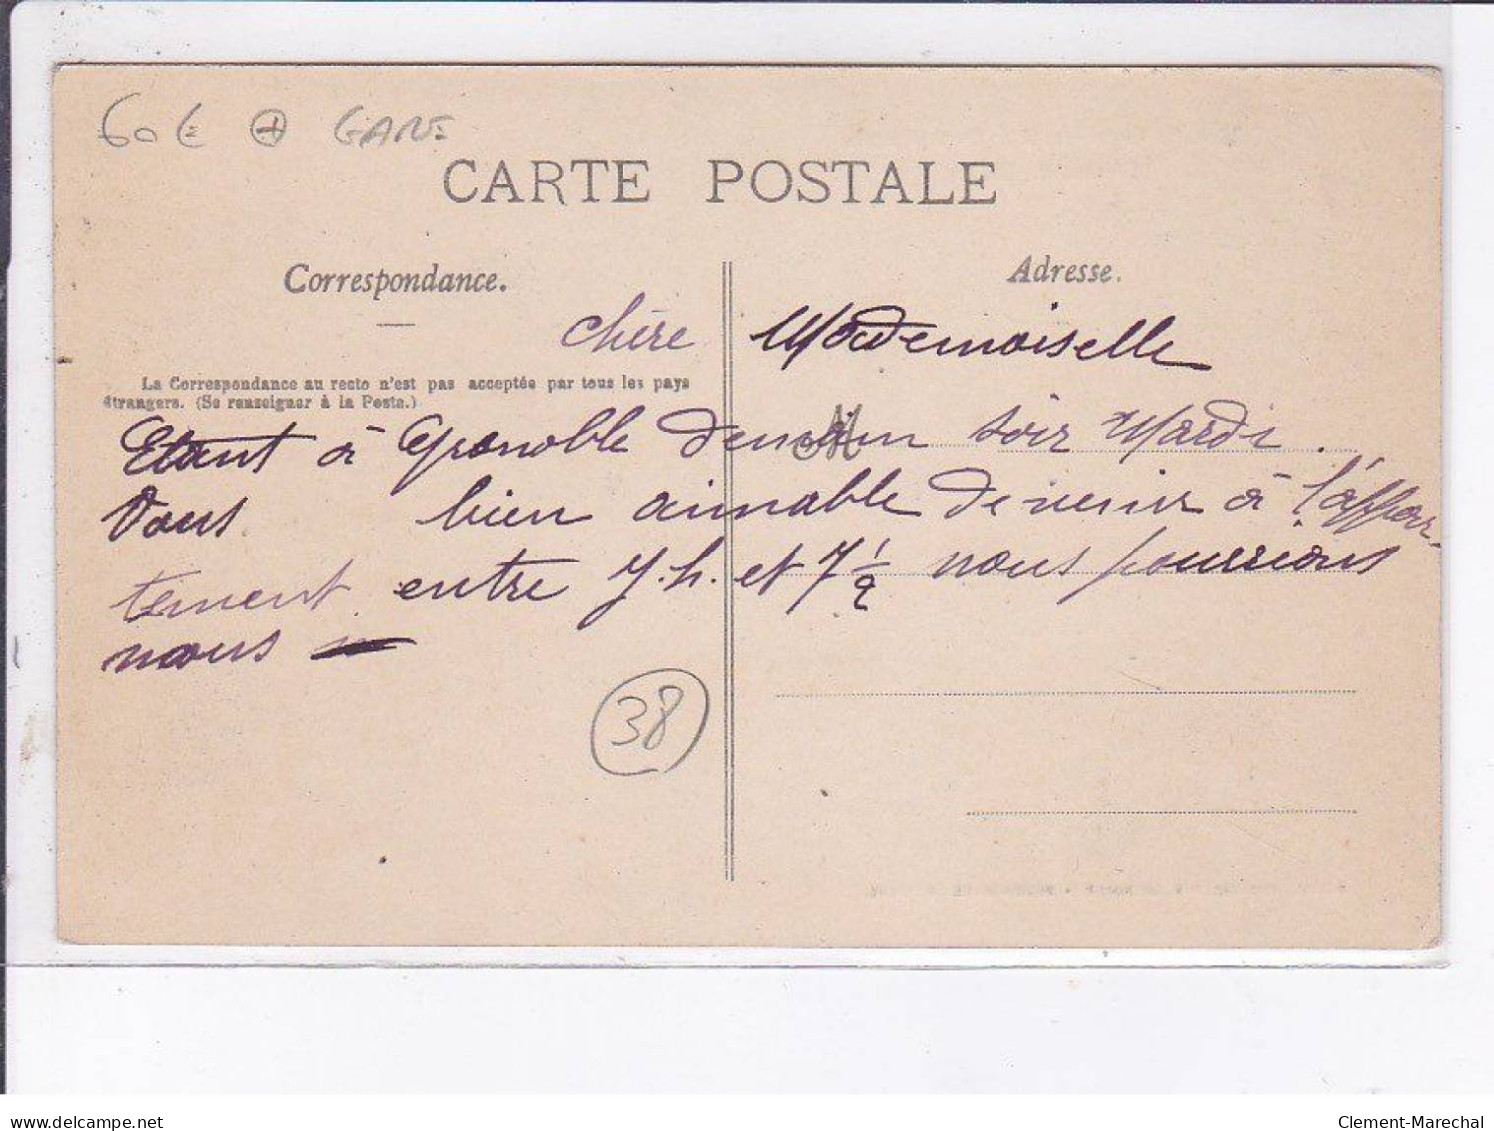 60 € + GARE
CARTE POSTALE
Correspondance.
Adresse.
Chère Mademoiselle
La Correspondance au recto n'est pas acceptée par tous les pays
étrangers. (Se renseigner à la Poste.)
Etant à Grenoble demain soir Mardi.
Vous bien aimable de venir à l'appar-
tement entre 7.h. et 7 1/2 nous pourrions
nous
38
delcampe.net
Clement-Marechal